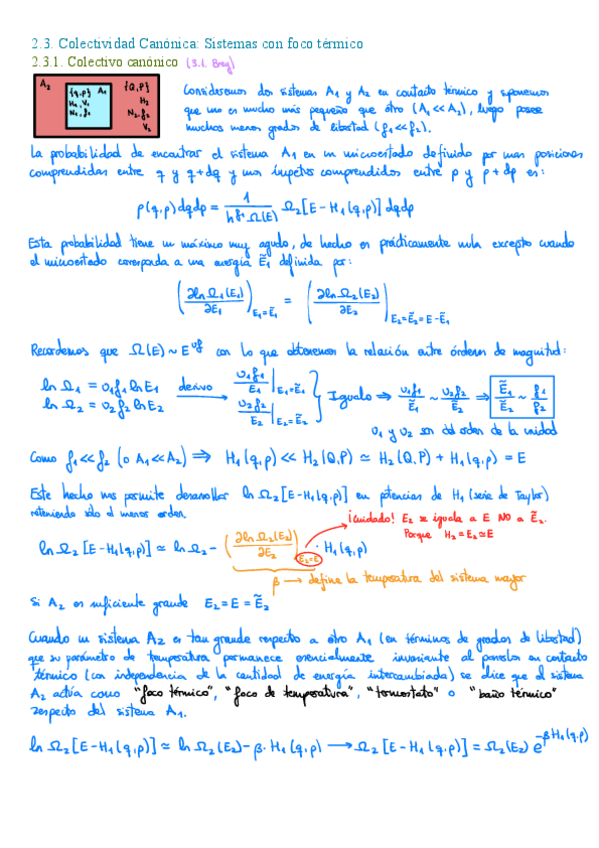 2.3. Colectividad Canónica: Sistemas con foco térmico
2.3.1. Colectivo canónico (3.1. Brey)
A₂ {q,p} A₁ {Q,P}
H₁, V₁ H₂
N₁, f₁ N₂, f₂
V₂
Consideremos dos sistemas A₁ y A₂ en contacto térmico y suponemos
que uno es mucho más pequeño que otro (A₁ << A₂), luego posee
muchos menos grados de libertad (f₁ << f₂).
La probabilidad de encontrar el sistema A₁ en un microestado definido por unas posiciones
comprendidas entre q y q+dq y unos ímpetus comprendidos entre p y p+dp es:
ρ(q,p)dqdp = 1/(h^f Ω(E)) Ω₂[E-H₁(q,p)] dqdp
Esta probabilidad tiene un máximo muy agudo, de hecho es prácticamente nula excepto cuando
el microestado corresponda a una energía Ẽ₁ definida por:
(∂lnΩ₁(E₁)/∂E₁)_{E₁=Ẽ₁} = (∂lnΩ₂(E₂)/∂E₂)|_{E₂=Ẽ₂=E-Ẽ₁}
Recordemos que Ω(E) ~ E^{υf} con lo que obtenemos la relación entre órdenes de magnitud:
ln Ω₁ = υ₁f₁ ln E₁ derivo υ₁f₁/E₁|_{E₁=Ẽ₁}
ln Ω₂ = υ₂f₂ ln E₂ υ₂f₂/E₂|_{E₂=Ẽ₂} } Igualo ⇒ υ₁f₁/Ẽ₁ ~ υ₂f₂/Ẽ₂ ⇒ Ẽ₁/Ẽ₂ ~ f₁/f₂
υ₁ y υ₂ son del orden de la unidad
Como f₁ << f₂ (o A₁ << A₂) ⇒ H₁(q,p) << H₂(Q,P) ≃ H₂(Q,P) + H₁(q,p) = E
Este hecho nos permite desarrollar ln Ω₂[E-H₁(q,p)] en potencias de H₁ (serie de Taylor)
reteniendo sólo el menor orden.
¡Cuidado! E₂ se iguala a E NO a Ẽ₂.
Porque H₂=E₂≃E
ln Ω₂ [E-H₁(q,p)] ≃ ln Ω₂ - (∂lnΩ₂(E₂)/∂E₂)_{E₂=E} · H₁(q,p)
β → define la temperatura del sistema mayor
Si A₂ es suficiente grande E₂ = E = Ẽ₂
Cuando un sistema A₂ es tan grande respecto a otro A₁ (en términos de grados de libertad)
que su parámetro de temperatura permanece esencialmente invariante al ponerlos en contacto
térmico (con independencia de la cantidad de energía intercambiada) se dice que el sistema
A₂ actúa como "foco térmico", "foco de temperatura", "termostato" o "baño térmico"
respecto del sistema A₁.
ln Ω₂[E-H₁(q,p)] ≃ ln Ω₂(E₂) - β·H₁(q,p) → Ω₂[E-H₁(q,p)] = Ω₂(E₂) e^{-βH₁(q,p)}